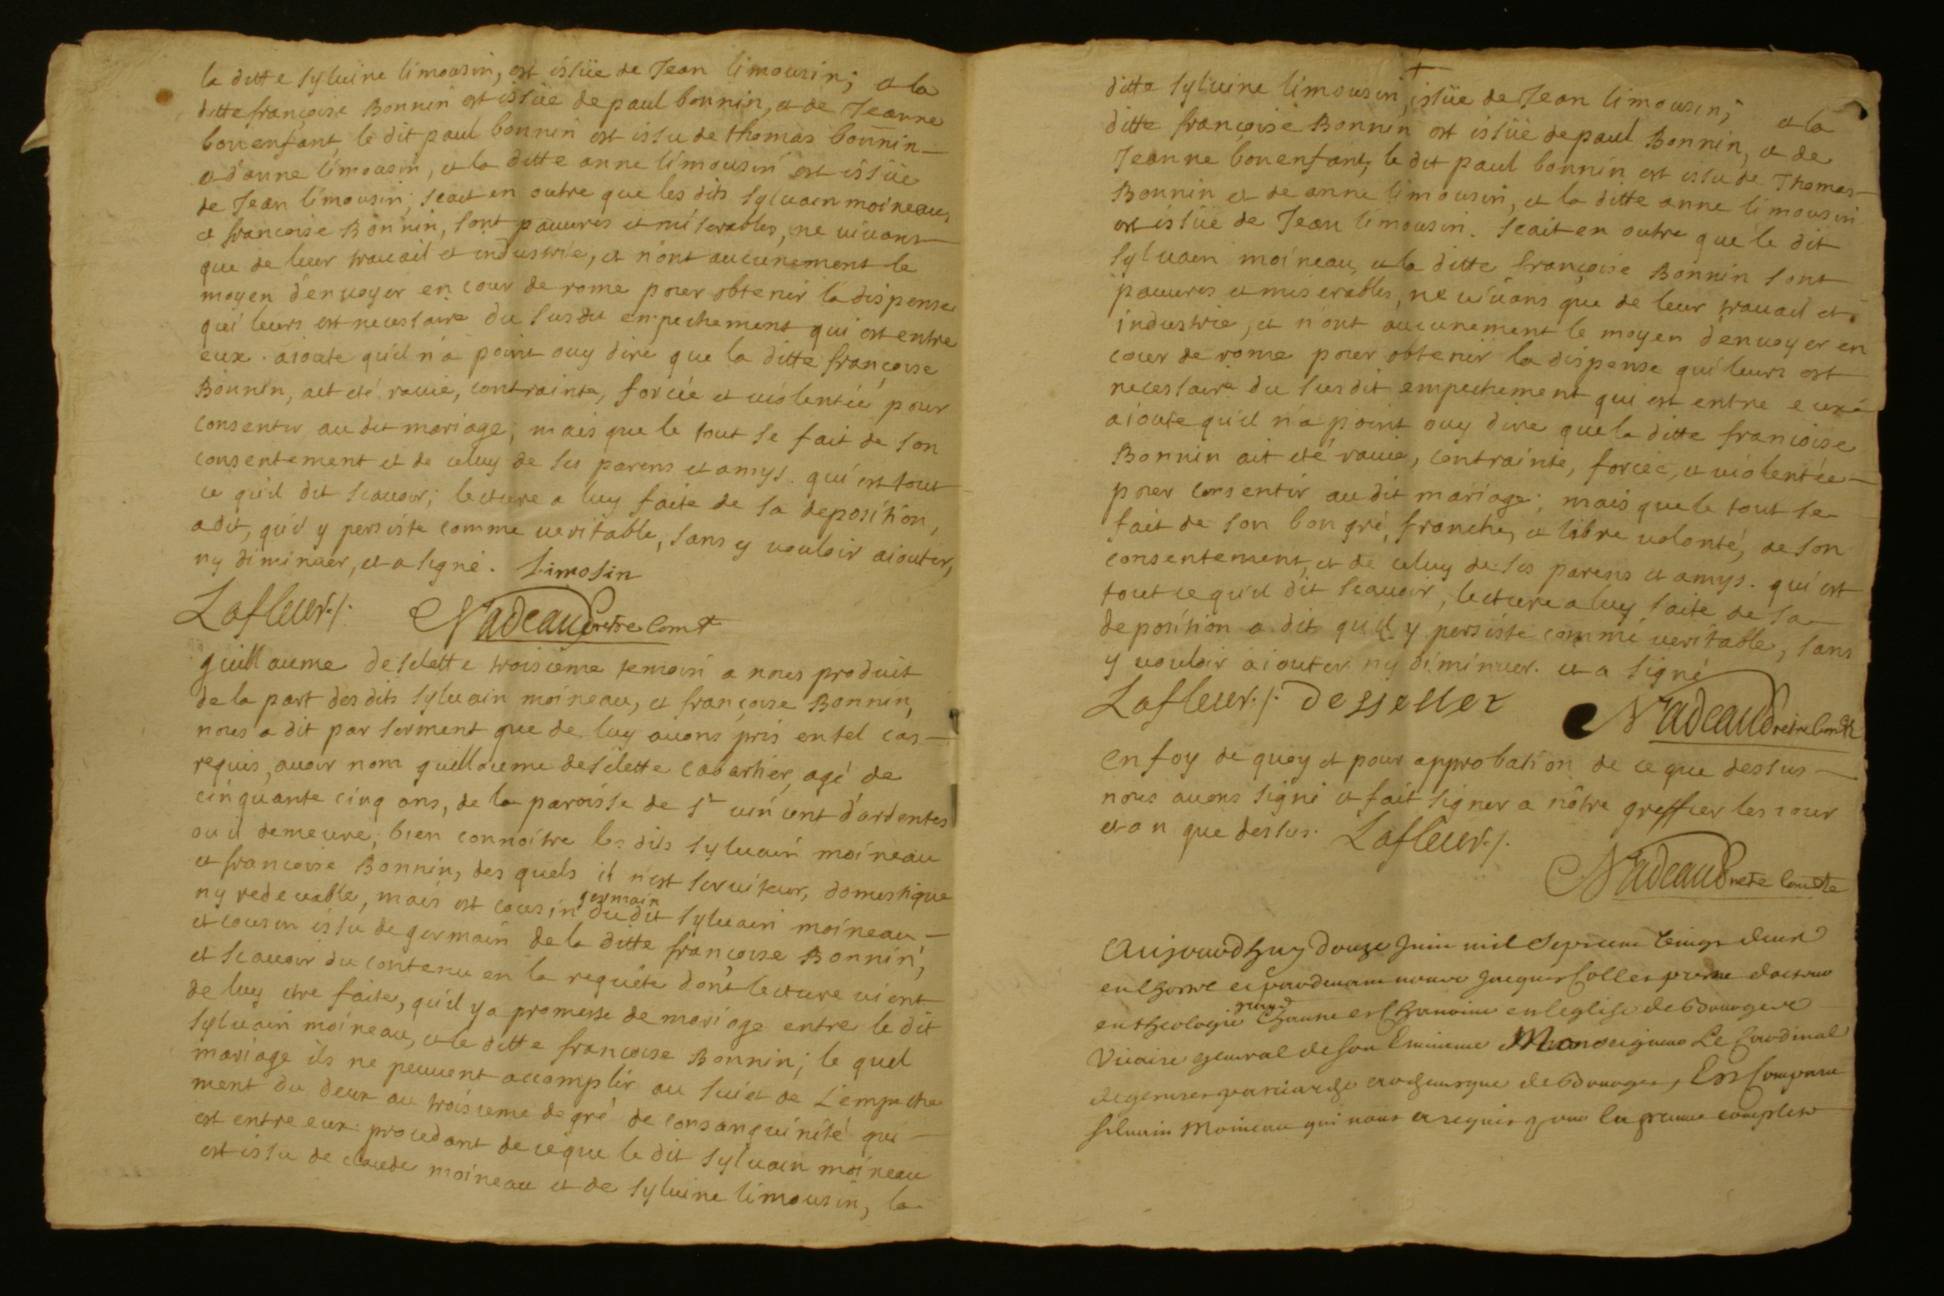 la ditte sylvine limousin, est issüe de Jean limousin; et la
ditte françoise Bonnin est issüe de paul bonnin, et de Jeanne
bonenfant, le dit paul bonnin est issu de thomas bonnin
et d'anne limousin, et la ditte anne limousin est issüe
de Jean limousin; scait en outre que les dits sylvain moineau,
et françoise Bonnin, sont pauvres et miserables, ne vivans
que de leur travail et industrie, et n'ont aucunement le
moyen d'envoyer en cour de rome pour obtenir la dispense
qui leurs est necessaire du susdit empechement qui est entre
eux. aioute qu'il n'a point ouy dire que la ditte françoise
Bonnin, ait eté ravie, contrainte, forcée et violentée pour
consentir au dit mariage; mais que le tout se fait de son
consentement et de celuy de ses parens et amys. qui est tout
ce qu'il dit scavoir; lecture a luy faite de sa deposition,
a dit, qu'il y persiste comme veritable, sans y vouloir aiouter,
ny diminuer, et a signé. Limosin
Lafleur./. Nadeaud pretre Com.re
guillaume deselette troisieme temoin a nous produit
de la part des dits sylvain moineau, et françoise Bonnin,
nous a dit par serment que de luy avons pris en tel cas
requis, avoir nom guillaume deselette cabartier, agé de
cinquante cinq ans, de la paroisse de st vincent d'ardentes
ou il demeure; bien connoitre les dits sylvain moineau
et francoise Bonnin, des quels il n'est serviteur, domestique
ny redevable, mais est cousin germain du dit sylvain moineau,
et cousin issu de germain de la ditte françoise Bonnin,
et scavoir du contenu en la requête dont lecture vient
de luy etre faite, qu'il y a promesse de mariage entre le dit
sylvain moineau, et la ditte françoise Bonnin; le quel
mariage ils ne peuvent accomplir au suiet de l'empeche
ment du deux au troisieme degré de consanguinité qui
est entre eux. procedant de ce que le dit sylvain moineau
est issu de claude moineau et de sylvine limousin, la
ditte sylvine limousin, issüe de Jean limousin; et la
ditte françoise Bonnin est issüe de paul Bonnin, et de
Jeanne bonenfant, le dit paul bonnin est issu de Thomas
Bonnin et de anne limousin, et la ditte anne limousin
est issüe de Jean limousin. scait en outre que le dit
sylvain moineau, et la ditte françoise Bonnin sont
pauvres et miserables, ne vivans que de leur travail et
industrie, et n'ont aucunement le moyen d'envoyer en
cour de rome pour obtenir la dispense qui leurs est
necessaire du susdit empechement qui est entre eux
aioute qu'il n'a point ouy dire que la ditte francoise
Bonnin ait eté ravie, contrainte, forcée, et violentée
pour consentir au dit mariage; mais que le tout se
fait de son bon gré, franche, et libre volonté, de son
consentement, et de celuy de ses parens et amys. qui est
tout ce qu'il dit scavoir, lecture a luy faite de sa
deposition a dit qu'il y persiste comme veritable, sans
y vouloir aiouter ny diminuer. et a signé
Lafleur./. desseller Nadeaud pretre Com.re
en foy de quoy et pour approbation de ce que dessus
nous avons signé et fait signer a nôtre greffier les iour
et an que dessus. Lafleur./.
Nadeaud pretre Com.re
Aujourdhuy douze Juin mil sept cent vingt deux
en lhostel et pardevant nous Jacques Collet pretre docteur
en theologie grand Chantre et Chanoine en leglise de Bourges et
Vicaire general de son Eminence Monseigneur Le Cardinal
de gesvres patriarche archevesque de Bourges, Est Comparu
silvain Moineau qui nous a requis que la preuve